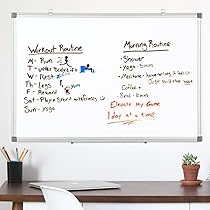 Workout Routine
M - Run
T - Upper Body Lift
W - Rest
Th - Legs
F - Rest
Sat - Play a Sport with friends :)
Sun - Yoga
Morning Routine
- Shower
- Yoga - 5min
- Meditate -
Coffee +
- Read - 5min
Elevate my Game
1 day at a time